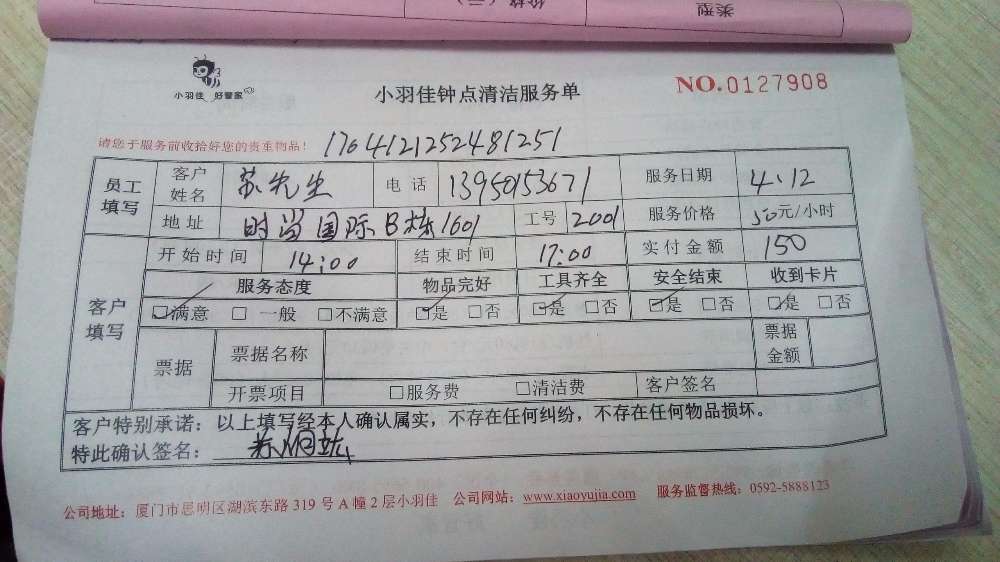 价格(元) 类型
小羽佳 好管家
小羽佳钟点清洁服务单
NO.0127908
请您于服务前收拾好您的贵重物品!
1764121252481251
员工填写 客户姓名 苏先生 电话 13950153671 服务日期 4.12
地址 时尚国际B栋1601 工号 2001 服务价格 50元/小时
客户填写 开始时间 14:00 结束时间 17:00 实付金额 150
服务态度 物品完好 工具齐全 安全结束 收到卡片
☑满意 □一般 □不满意 ☑是 □否 ☑是 □否 ☑是 □否 ☑是 □否
票据 票据名称 票据金额
开票项目 □服务费 □清洁费 客户签名
客户特别承诺:以上填写经本人确认属实,不存在任何纠纷,不存在任何物品损坏。
特此确认签名:
公司地址:厦门市思明区湖滨东路319号A幢2层小羽佳 公司网站:www.xiaoyujia.com 服务监督热线:0592-5888123